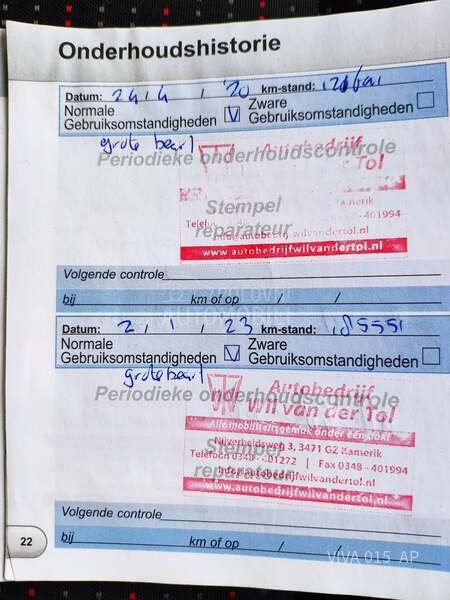 Onderhoudshistorie
Datum: 24 / 4 / '20 km-stand:
Normale Gebruiksomstandigheden V Zware Gebruiksomstandigheden
grote beurt
Periodieke onderhoudscontrole
Autobedrijf
Tol
Kamerik
Stempel
Telef - 401994
reparateur
info@autobedrijfwilvandertol.nl
www.autobedrijfwilvandertol.nl
Volgende controle
bij km of op / /
Datum: 2 / 1 / 23 km-stand: 185551
Normale Gebruiksomstandigheden V Zware Gebruiksomstandigheden
grote beurt
Autobedrijf
Periodieke onderhoudscontrole
Wil van der Tol
Automobiliteitsgemak onder één dak!
Nijverheidsweg 3, 3471 GZ Kamerik
Stempel
Telefoon 0348 - 401272 | Fax 0348 - 401994
reparateur
info@autobedrijfwilvandertol.nl
www.autobedrijfwilvandertol.nl
Volgende controle
22
bij km of op / /
VIVA 015 AP